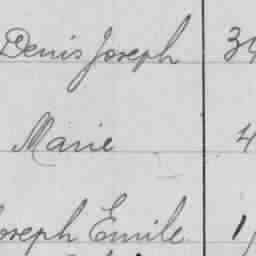 Denis Joseph
Marie 4
Joseph Emile